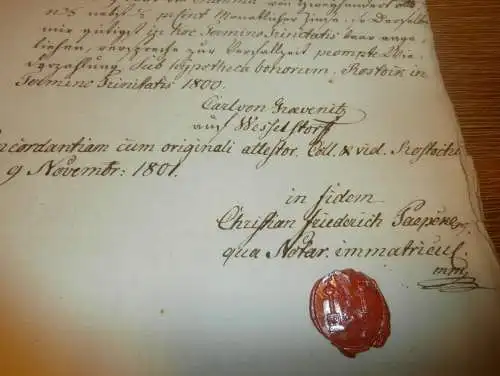 nos nebst 5 pCent Monatlicher Zinse, so Derselbe
mir gütigst in hoc Termino Trinitatis baar ange-
liehen, verspreche zur Verfallzeit prompte Wie-
derzahlung, sub hypotheca bonorum. Rostock in
Termino Trinitatis 1800.
Carl von Graevenitz
auf Wesselstorff
concordantiam cum originali attestor. Coll. & vid. Rostochi
9 Novembr: 1801.
in fidem
Christian Friederich Paepcke,
qua Notar. immatricul.
mm